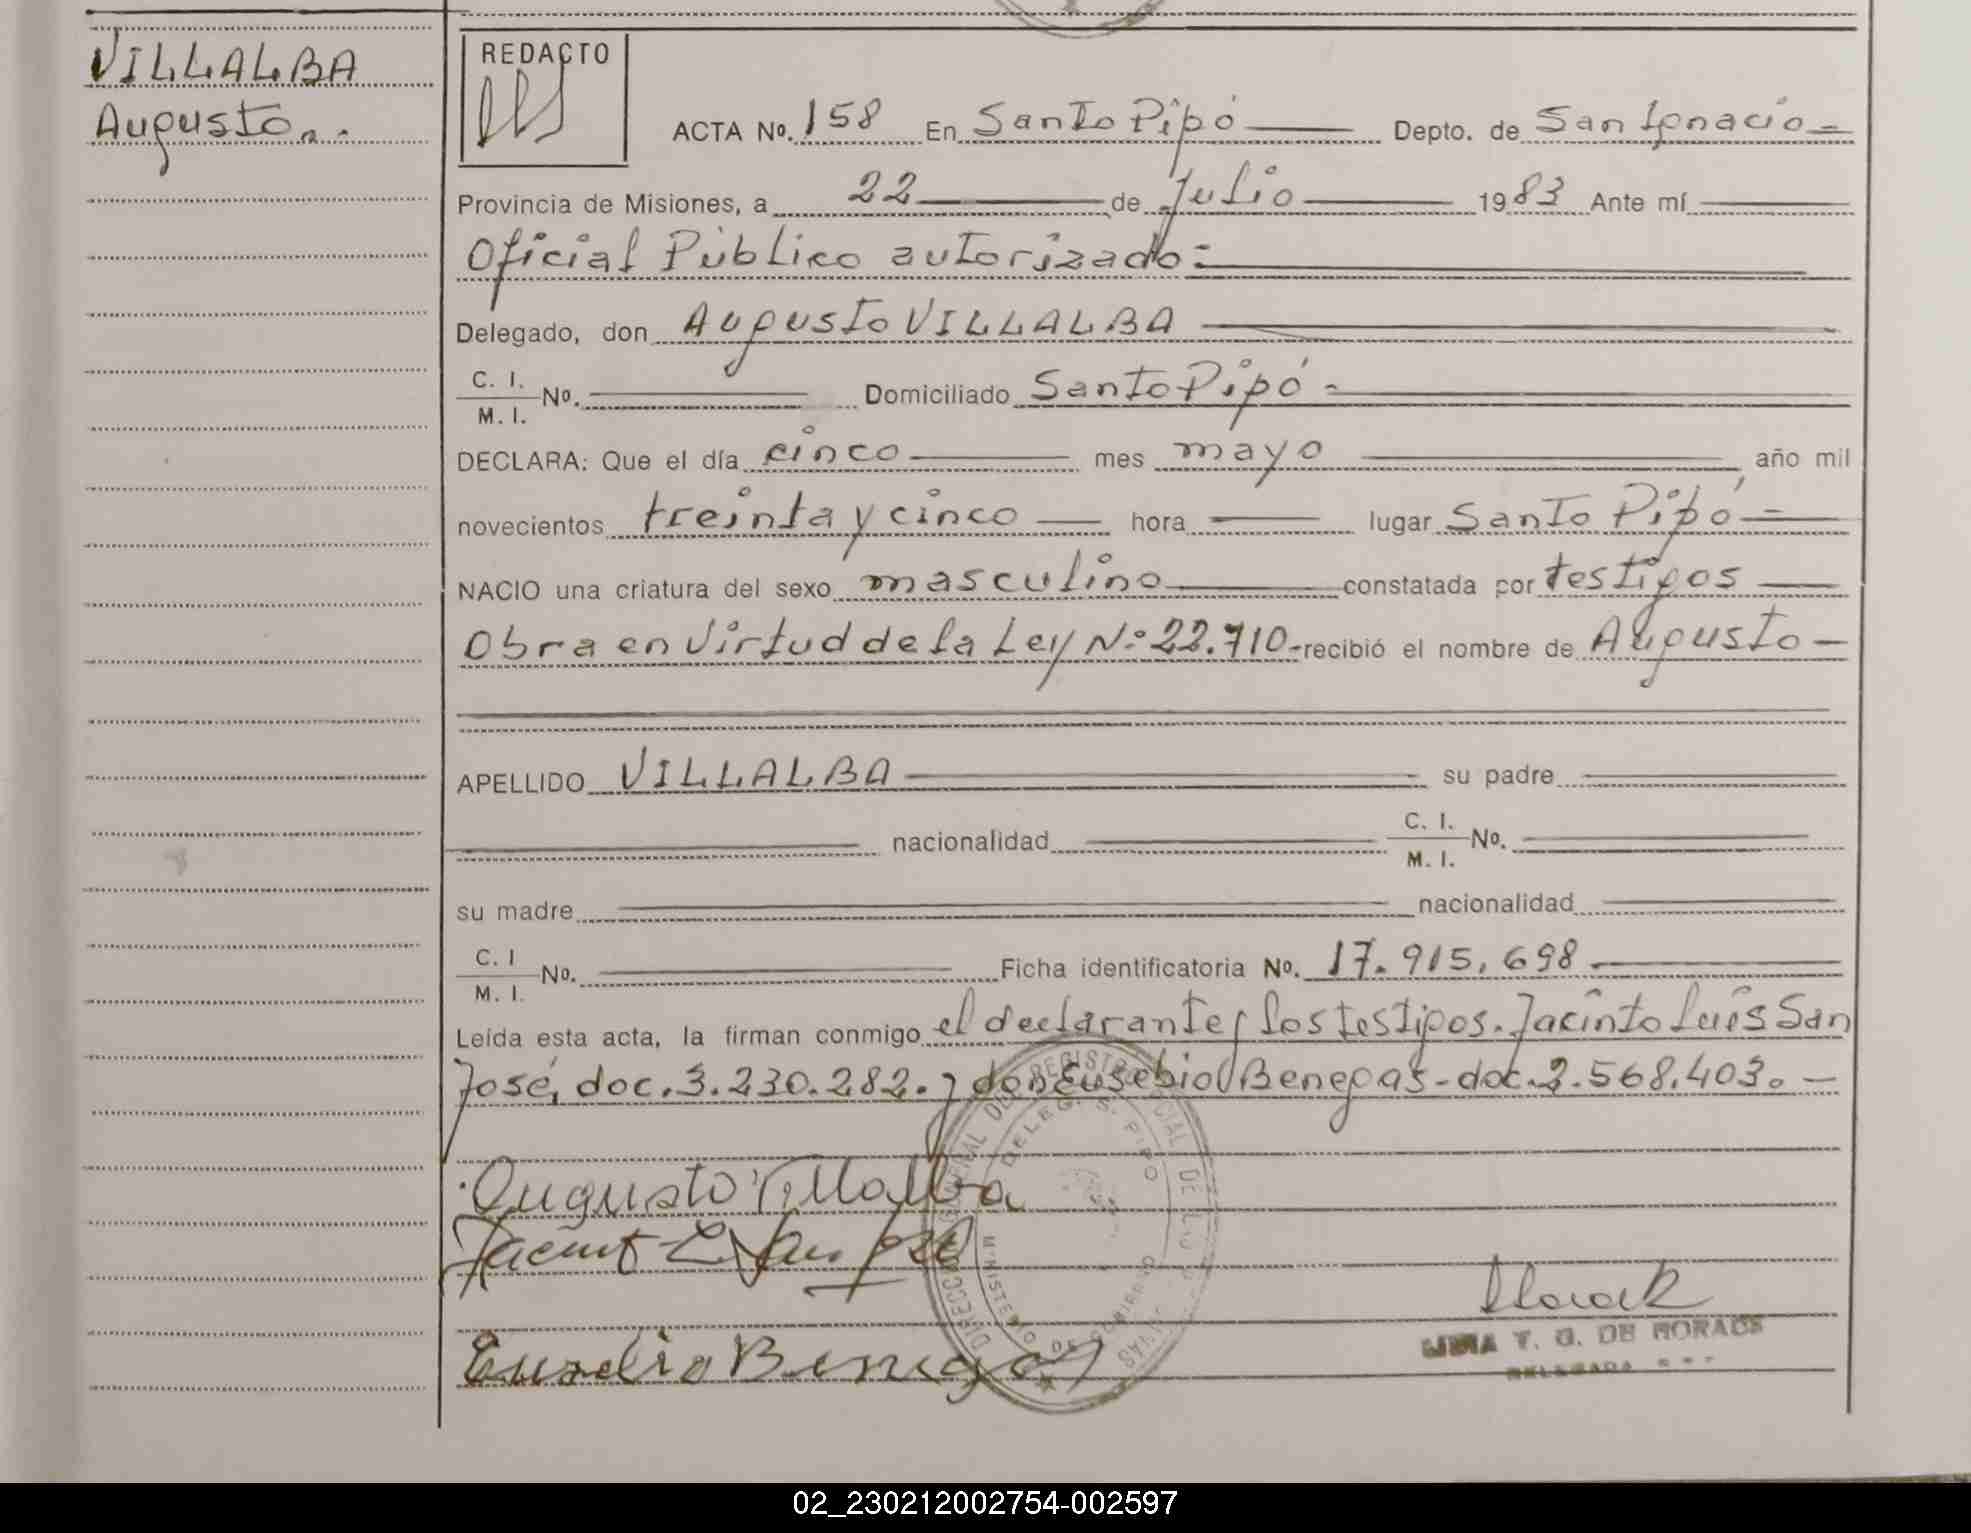 VILLALBA
Augusto.-.
REDACTO
ACTA No. 158 En Santo Pipó Depto. de San Ignacio-
Provincia de Misiones, a 22 de Julio 1983 Ante mí
Oficial Público autorizado:
Delegado, don Augusto VILLALBA
C. I.
M. I. No. Domiciliado Santo Pipó-
DECLARA: Que el día cinco mes mayo año mil
novecientos treinta y cinco hora lugar Santo Pipó-
NACIO una criatura del sexo masculino constatada por testigos
Obra en Virtud de la Ley N: 22.710- recibió el nombre de Augusto-
APELLIDO VILLALBA su padre
nacionalidad C. I.
M. I. No.
su madre nacionalidad
C. I
M. I. No. Ficha identificatoria No. 17.915.698
Leída esta acta, la firman conmigo el declarante y los testigos. Jacinto Luis San
José, doc. 3.230.282. y don Eusebio Benegas- doc. 2.568.403.-
Augusto Villalba
DELEG. S. PIPO
MINISTERIO DE GOBIERNO
Eusebio Benegas
T. G. DE MORAES
DELEGADA
02_230212002754-002597